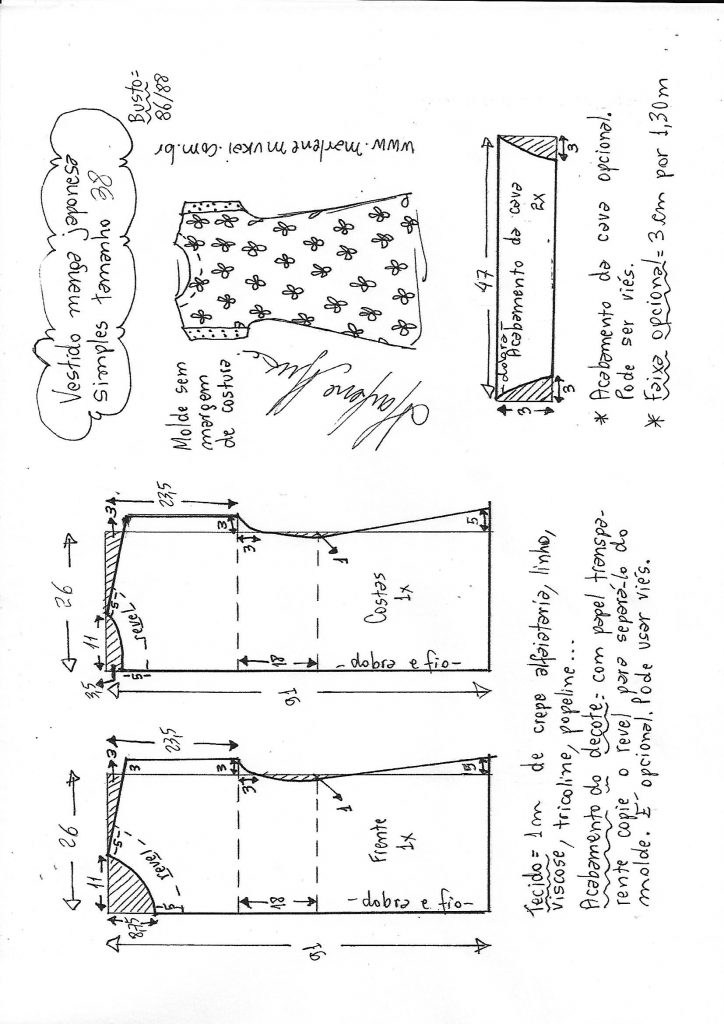 Vestido manga japonesa
simples tamanho 38
Busto=
86/88
www.marlenemukai.com.br
Molde sem
margem
de costura
47
-dobra-
Acabamento da cava
2X
3
3
3
* Acabamento da cava opcional.
Pode ser viés.
* Faixa opcional = 3 cm por 1,30m
26
11
3
23,5
3,5
5
5
revel
3
3
18
1
5
Costas
1x
-dobra e fio-
91
26
11
3
23,5
8,75
5
5
revel
3
3
3
18
1
5
Frente
1x
-dobra e fio-
91
Tecido = 1m de crepe alfaiataria, linho,
viscose, tricoline, popeline...
Acabamento do decote: com papel transpa-
rente copie o revel para separá-lo do
molde. É opcional. Pode usar viés.